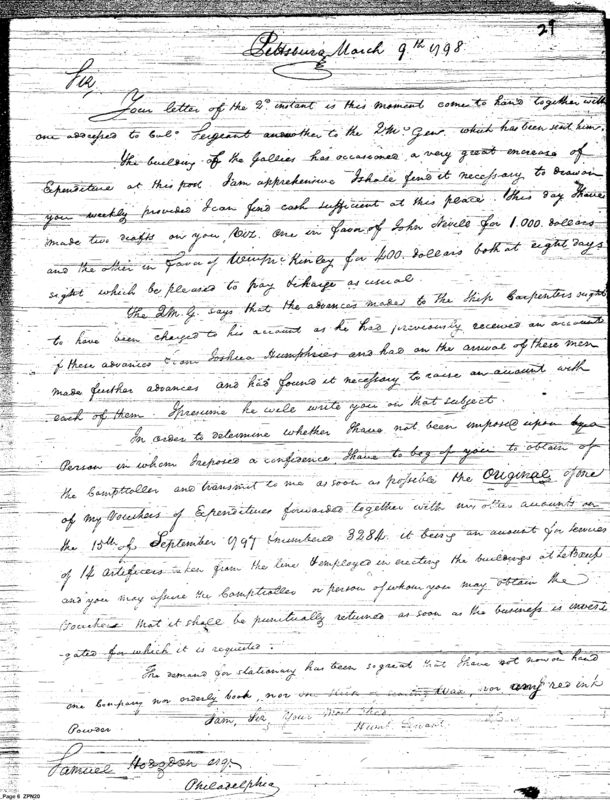 29
Pittsburg March 9th 1798
Sir,
Your letter of the 2d instant is this moment come to hand together with
one addressed to Colo. Sergeant another to the Q.M. Genl. which has been sent him.
The building of the Gallies has occasioned a very great increase of
Expenditure at this post I am apprehensive I shall find it necessary to draw on
you weekly provided I can find cash sufficient at this place this day I have
made two drafts on you, Viz. One in favor of John Nevill for 1.000. dollars
and the other in favor of McKinley for 400. dollars both at eight days
sight which be pleased to pay & charge as usual.
The Q.M.G. says that the advances made to the Ship Carpenters ought
to have been charged to his account as he had previously received an account
of these advances from Joshua Humphries and had on the arrival of these men
made further advances and had found it necessary to raise an account with
each of them I presume he will write you on that subject.
In order to determine whether I have not been imposed upon by a
Person in whom I reposed a confidence, I have to beg of you to obtain of
the Comptroller and transmit to me as soon as possible the Original of one
of my Vouchers of Expenditures forwarded together with my other accounts on
the 15th of September 1797 numbered 3284. it being an amount for services
of 14 artificers taken from the line & employed in erecting the buildings at LeBoeuf
and you may assure the Comptroller or person of whom you may obtain the
Voucher that it shall be punctually returned as soon as the business is investi
-gated for which it is requested.
The demand for stationary has been so great that I have not now on hand
one Company nor orderly book, nor one stick of sealing Wax, nor any red ink
Powder.
I am, Sir, Your Most Obed.
Humb. Servant
Samuel Hodgdon esqr.
Philadelphia
Page 6 ZPN20